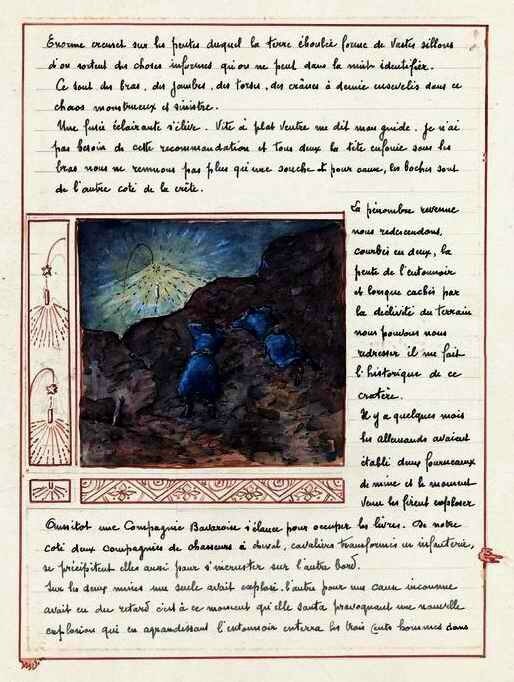 Enorme creuset sur les pentes duquel la terre éboulée forme de vastes sillons
d'où sortent des choses informes qu'on ne peut dans la nuit identifier.
Ce sont des bras, des jambes, des torses, des crânes à demie ensevelis dans ce
chaos monstrueux et sinistre.
Une fusée éclairante s'élève. Vite à plat ventre me dit mon guide. Je n'ai
pas besoin de cette recommandation et tous deux la tête enfouie sous les
bras nous ne remuons pas plus qu'une souche et pour cause, les boches sont
de l'autre coté de la crête.
La pénombre revenue
nous redescendons,
courbés en deux, la
pente de l'entonnoir
et lorsque cachés par
la déclivité du terrain
nous pouvons nous
redresser il me fait
l'historique de ce
cratère.
Il y a quelques mois
les allemands avaient
établi deux fourneaux
de mine et le moment
venu les firent exploser
Aussitot une Compagnie Bavaroise s'élance pour occuper les lèvres. De notre
coté deux compagnies de chasseurs à cheval, cavaliers transformés en infanterie,
se précipitent elles aussi pour s'incruster sur l'autre bord.
Sur les deux mines une seule avait explosé. l'autre pour une cause inconnue
avait eu du retard c'est à ce moment qu'elle sauta provoquant une nouvelle
explosion qui en agrandissant l'entonnoir enterra les trois cents hommes dans